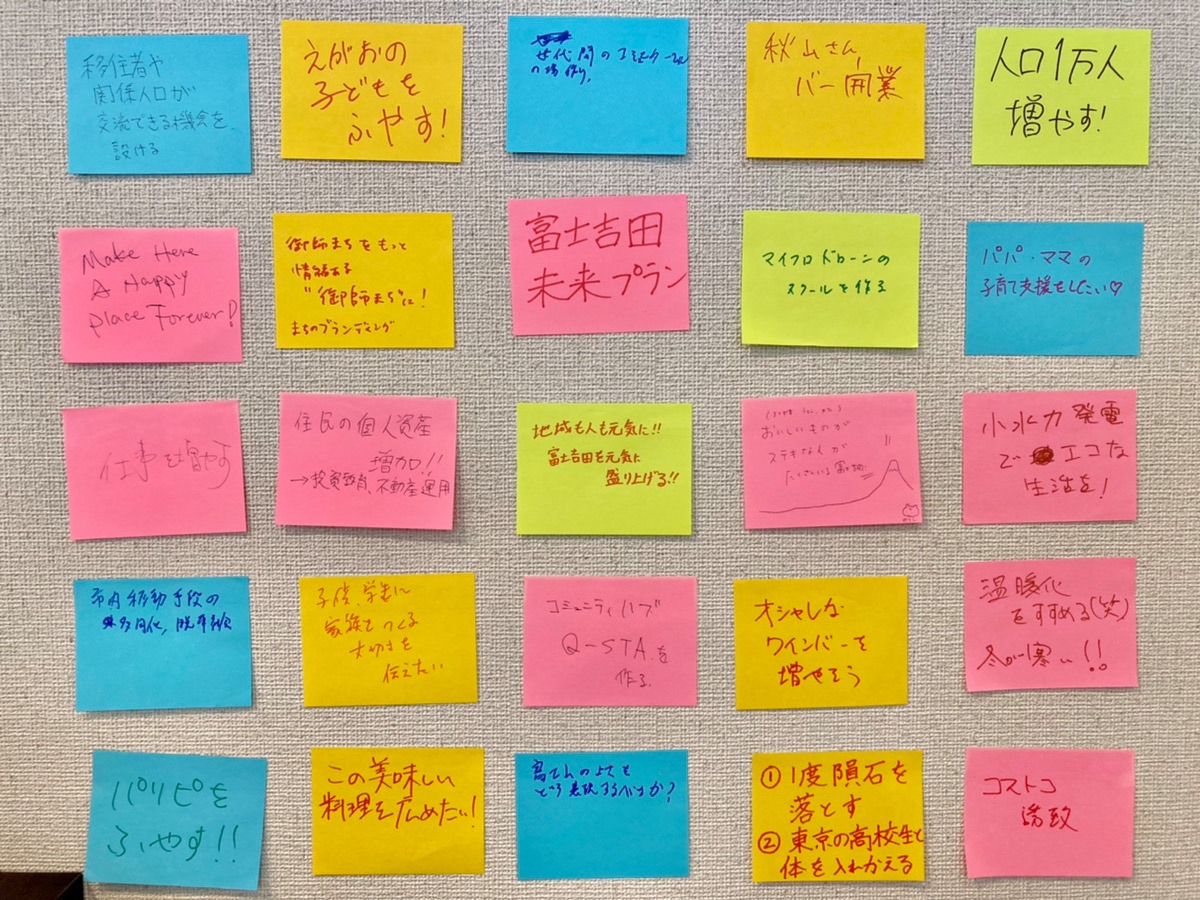 移住者や
関係人口が
交流できる機会を
設ける
えがおの
子どもを
ふやす!
世代間のコミュニケーション
の場作り。
秋山さん
バー開業
人口1万人
増やす!
Make Here
A Happy
place Forever!
御師まちをもっと
情緒ある
"御師まち"に!
まちのブランディング
富士吉田
未来プラン
マイクロドローンの
スクールを作る
パパ・ママの
子育て支援をしたい♡
仕事を増やす
住民の個人資産
増加!!
→投資教育、不動産運用
地域も人も元気に!!
富士吉田を元気に
盛り上げる!!
おいしいものが
ステキな人が
たくさんいる
小水力発電
で エコな
生活を!
市内移動手段の
多角化, 脱車社会
子供、学生に
家族をつくる
大切さを
伝えたい
コミュニティハブ
Q-STAを
作る
オシャレな
ワインバーを
増やそう
温暖化
をすすめる(笑)
冬が寒い!!
パリピを
ふやす!!
この美味しい
料理を広めたい!
どう表現するべきか?
① 1度隕石を
落とす
② 東京の高校生と
体を入れかえる
コストコ
誘致